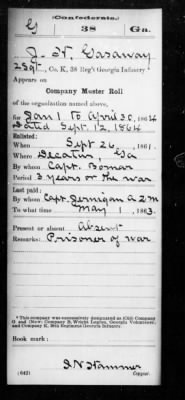 (Confederate.)
G 38 Ga.
J. W. Gasaway
2 Sgt., Co. K, 38 Reg't Georgia Infantry*
Appears on
Company Muster Roll
of the organization named above,
for Jan 1 to April 30, 1864
Dated Sept. 12, 1864
Enlisted:
When Sept 26, 1861.
Where Decatur, Ga
By whom Capt. Bomar
Period 3 years or the war
Last paid:
By whom Capt. Jernigan A 2 M
To what time May 1, 1863.
Present or absent Absent
Remarks: Prisoner of war
*This company was successively designated as (Old) Company
G and (New) Company B, Wright Legion, Georgia Volunteers,
and Company K, 38th Regiment Georgia Infantry.
Book mark:
(642) Copyist.